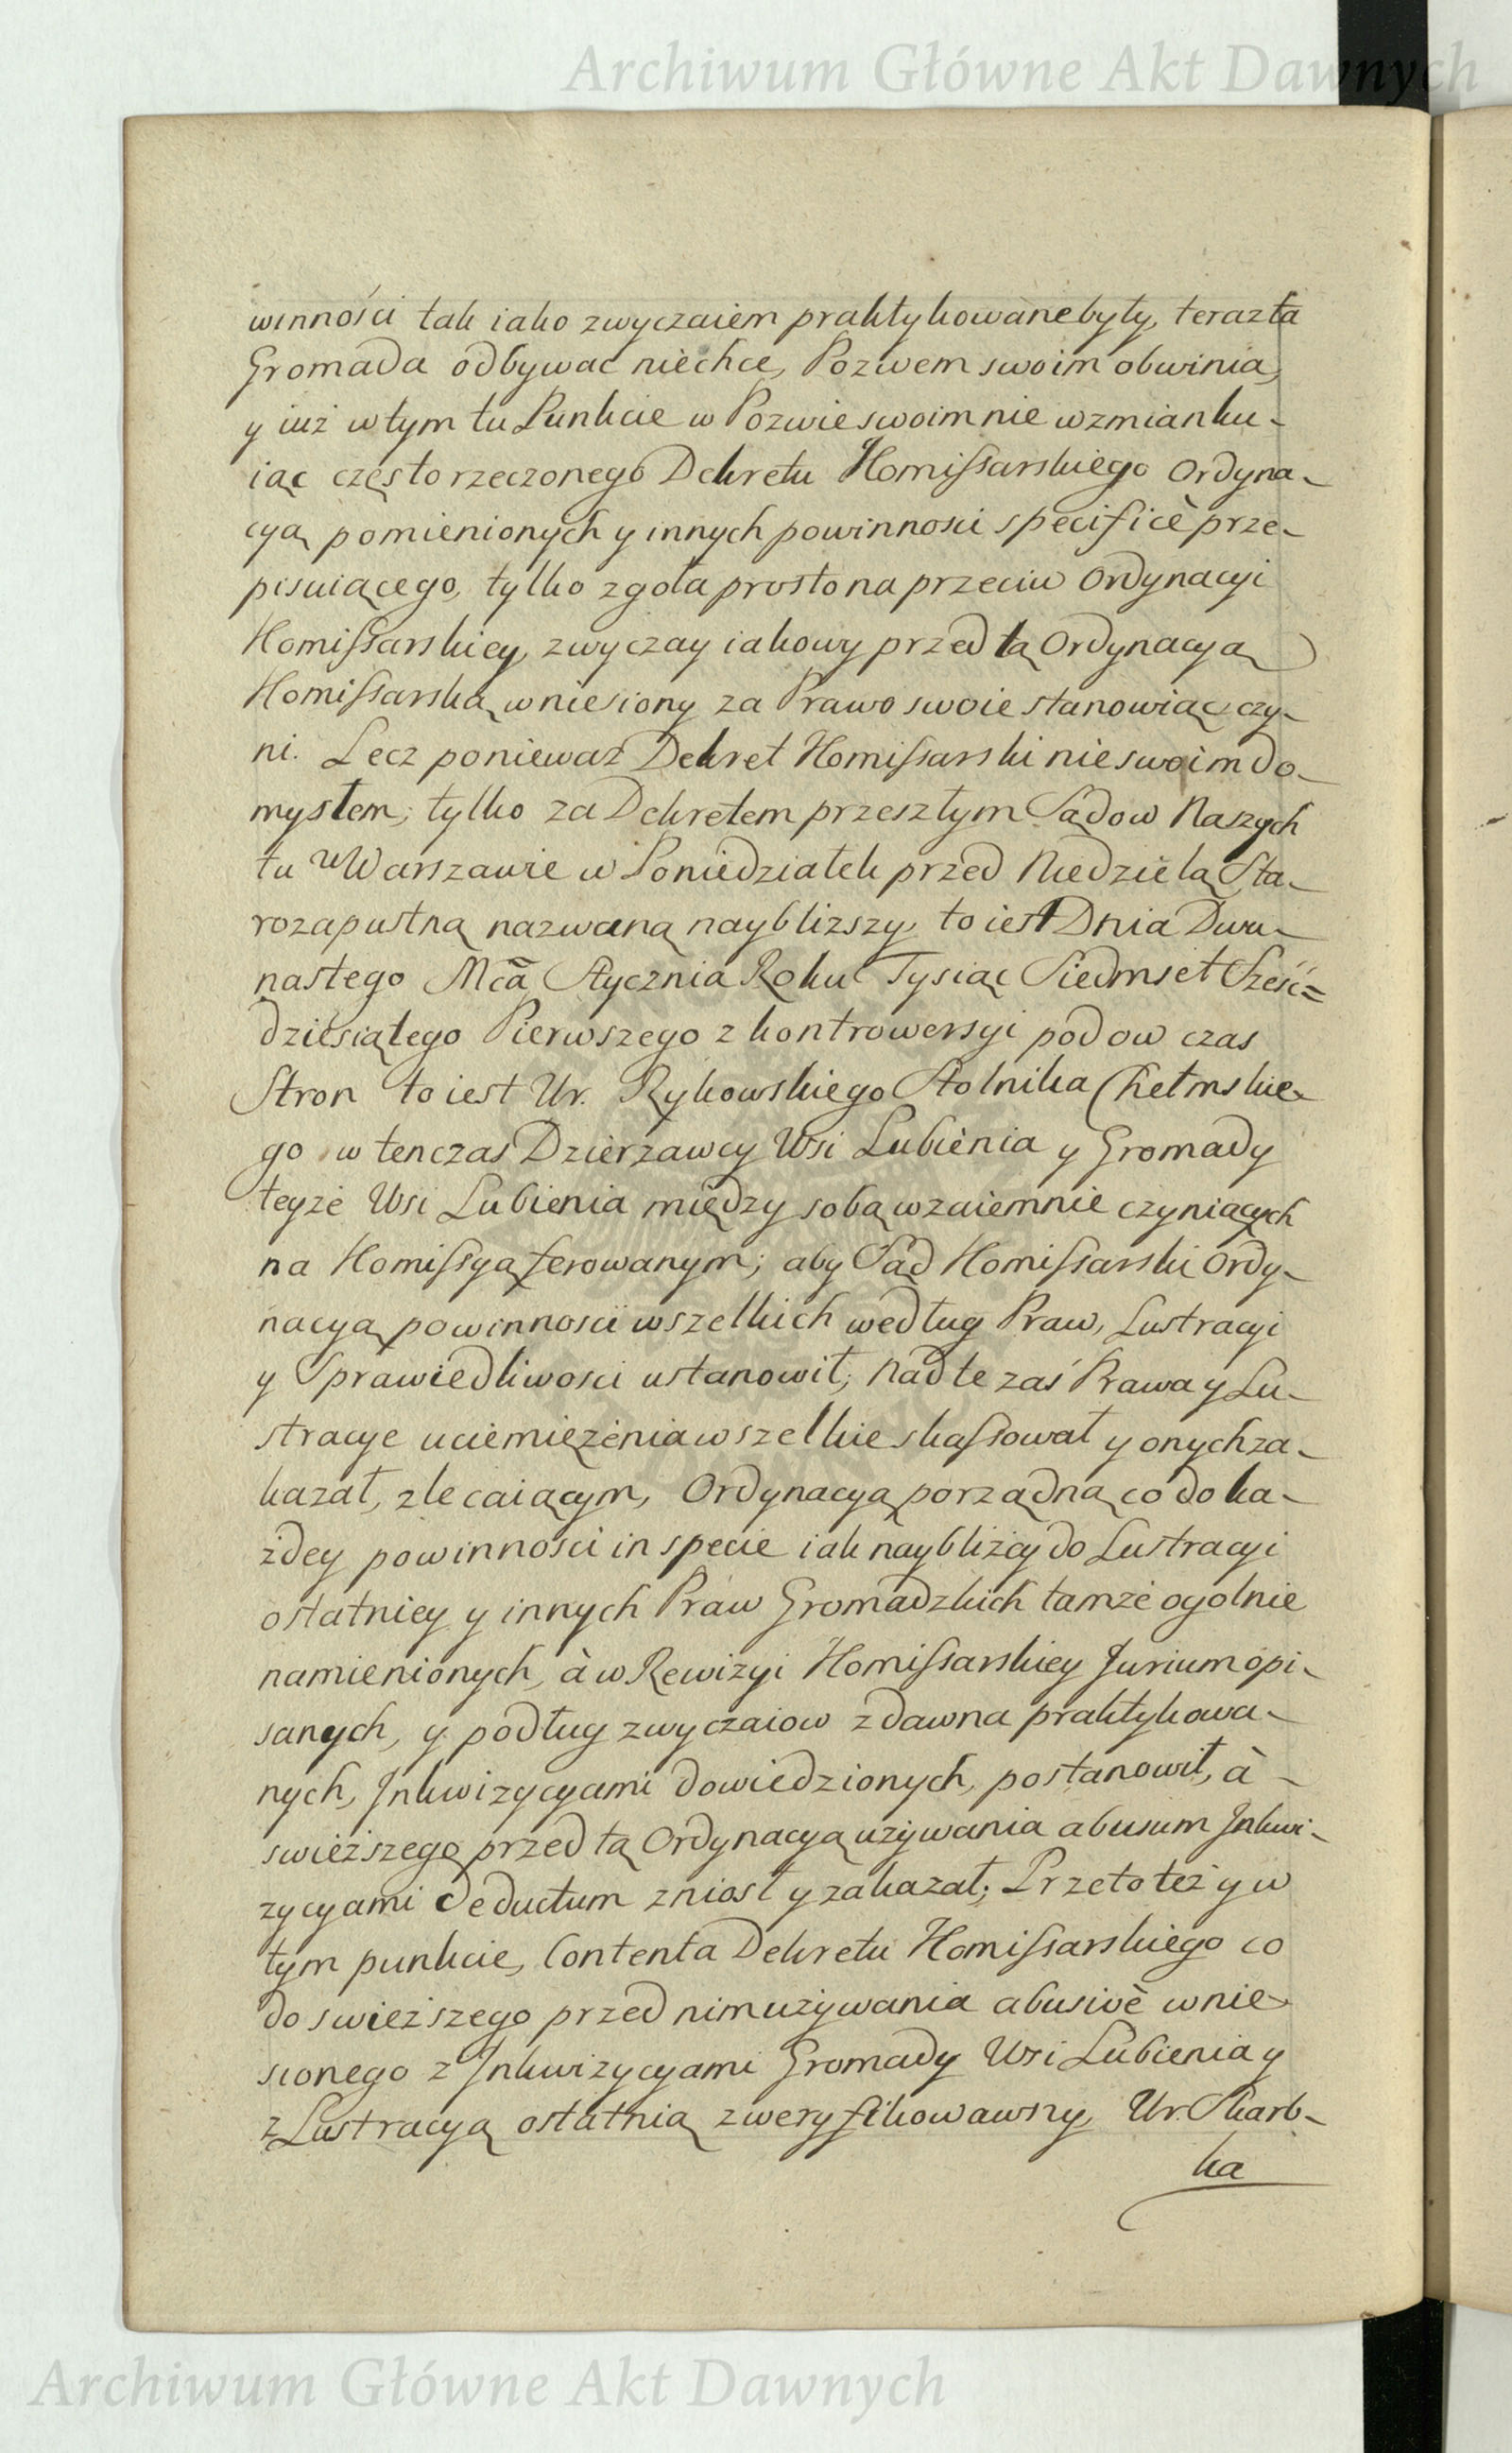 Archiwum Główne Akt Dawnych
winności tak iako zwyczaiem praktykowane były, teraz ta
Gromada odbywać niechce, Pozwem swoim obwinia,
y iuż w tym tu Punkcie w Pozwie swoim nie wzmianku-
iąc często rzeczonego Dekretu Kommissarskiego Ordyna-
cyą pomienionych y innych powinnosci specificè prze-
pisuiącego, tylko zgoła prosto na przeciw Ordynacyi
Komissarskiey, zwyczay iakowy przed tą Ordynacyą
Komissarską wniesiony za Prawo swoie stanowiąc czy-
ni. Lecz ponieważ Dekret Komissarski nie swoim do-
mysłem, tylko za Dekretem przeszłym Sądow Naszych
tu w Warszawie w Poniedziałek przed Niedzielą Sta-
rozapustną nazwaną naybliższy, to iest Dnia Dwu-
nastego Mca Stycznia Roku Tysiąc Siedmset Sześć=
dziesiątego Pierwszego z kontrowersyi pod ow czas
Stron to iest Ur. Rykowskiego Stolnika Chełmskie-
go w tenczas Dzierzawcy Wsi Lubienia y Gromady
teyże Wsi Lubienia między sobą wzaiemnie czyniących
na Komissyą ferowanym; aby Sąd Komissarski Ordy-
nacyą powinnosci wszelkich według Praw, Lustracyi
y Sprawiedliwosci ustanowił, nad te zaś Prawa y Lu-
stracye uciemiężenia wszelkie skassował y onych za-
kazał, zlecaiącym, Ordynacyą porządną co do ka-
żdey powinności in specie iak naybliżey do Lustracyi
ostatniey y innych Praw Gromadzkich tamże ogolnie
namienionych, à w Rewizyi Komissarskiey Jurium opi-
sanych, y podług zwyczaiow zdawna praktykowa-
nych, Jnkwizycyami dowiedzionych, postanowił, à -
swieższego przed tą Ordynacyą używania abusum Jnkwi-
zycyami deductum zniosł y zakazał; Przeto też y w
tym punkcie, Contenta Dekretu Komissarskiego co
do swieższego przed nim używania abusivè wnie-
sionego z Jnkwizycyami Gromady Wsi Lubienia y
z Lustracyą ostatnią zweryfikowawszy, Ur. Skarb-
ka
Archiwum Główne Akt Dawnych